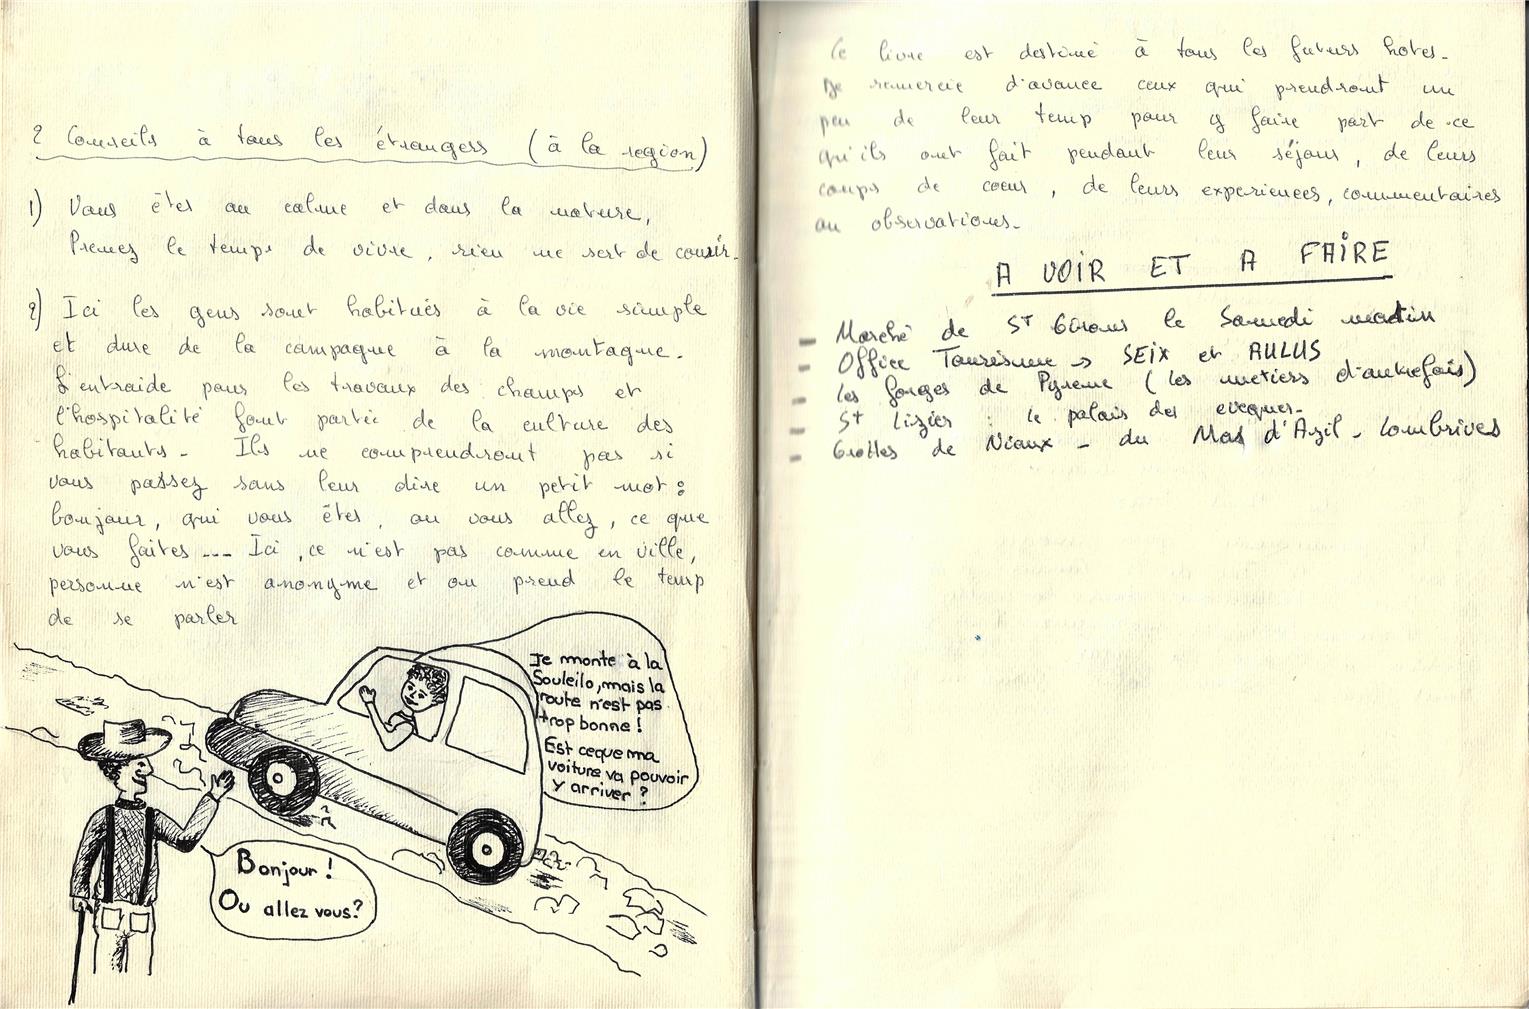 2 Conseils à tous les étrangers (à la region)
1) Vous êtes au calme et dans la nature,
Prenez le temps de vivre, rien ne sert de courir.
2) Ici les gens sont habitués à la vie simple
et dure de la campagne à la montagne.
L'entraide pour les travaux des champs et
l'hospitalité font partie de la culture des
habitants. Ils ne comprendront pas si
vous passez sans leur dire un petit mot :
bonjour, qui vous êtes, ou vous allez, ce que
vous faites ... Ici, ce n'est pas comme en ville,
personne n'est anonyme et on prend le temp
de se parler
Je monte à la
Souleilo, mais la
route n'est pas
trop bonne !
Est ce que ma
voiture va pouvoir
y arriver ?
Bonjour !
Ou allez vous ?
Ce livre est destiné à tous les futurs hotes.
Je remercie d'avance ceux qui prendront un
peu de leur temp pour y faire part de ce
qu'ils ont fait pendant leur séjour, de leurs
coups de coeur, de leurs experiences, commentaires
ou observations.
A VOIR ET A FAIRE
- Marché de St Girons le Samedi matin
- Office Tourisme → SEIX et AULUS
- les forges de Pyrene (les metiers d'autrefois)
- St Lizier : le palais des eveques.
- Grottes de Niaux - du Mas d'Azil - Lombrives